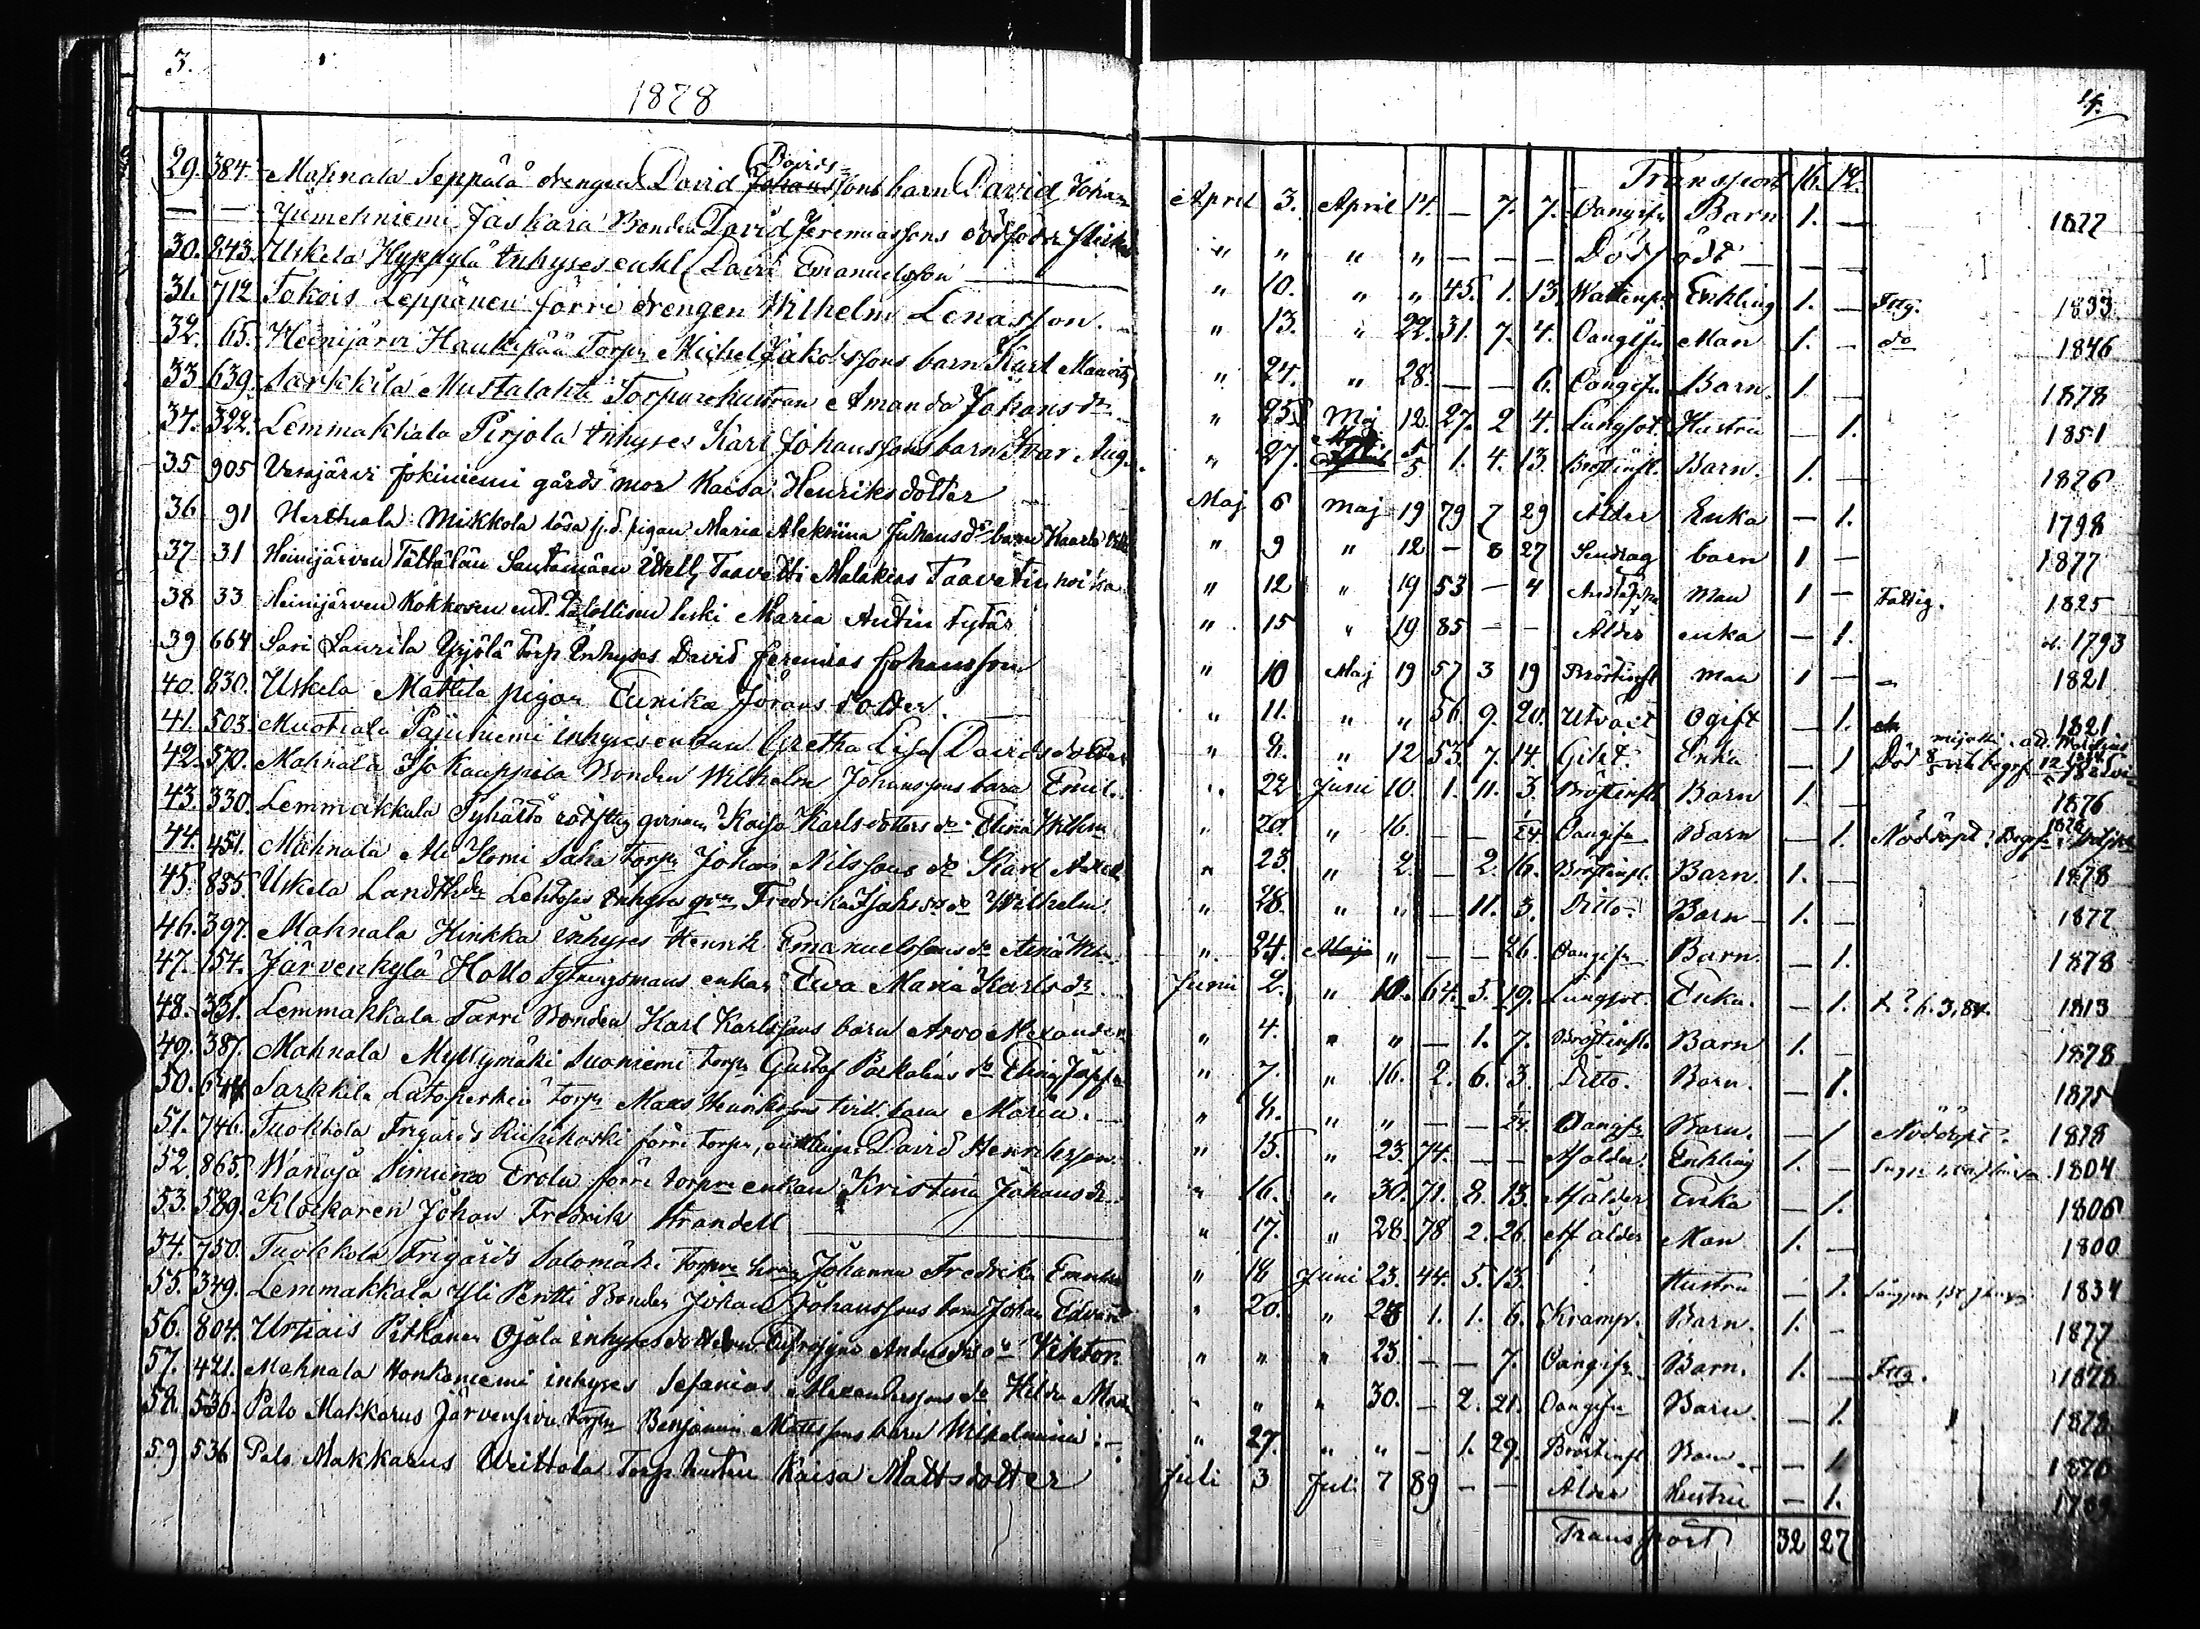 3.
1878
29. 384. Mahnala Seppälä drengen David Johanssons Davids barn David Johan
— — Jumehniemi Jaskara Bonden David Jeremiassons dödfödde flicka
30. 843. Uskela Hyppylä Inhyses enkl David Emanuelsson
31. 712 Tokois Leppänen förre drengen Wilhelm Lenasson.
32. 65. Heinijärvi Haukipää Torpn Michel Jakobssons barn Karl Mauritz
33 639. Sarkkila Mustalahti Torparehustrun Amanda Johansdr
34. 322. Lemmakkala Pirjola Inhyses Karl Johanssons barn Ivar Aug.
35 905 Vesajärvi Jokiniemi gårds mor Kaisa Henriksdotter
36 91 Herttuala Mikkola lösa pigan Maria Aleksiina Juhansdr barn Kaarlo
37 31 Heinijärven Tättälän Santamäen Itsell. Taavetti Malakias Taavetin poika
38 33 Heinijärven Kokkosen ent. talollisen leski Maria Antin tytär
39 664 Sari Laurila Yrjölä torp Inhyses David Jeremias Johansson
40. 830. Uskela Mattila pigan Eunika Jörans dotter
41. 503. Muotiala Pajuniemi inhysesenkan Gretha Lisa Davidsdotter
42. 370. Mahnala Iso Kauppila Bonden Wilhelm Johanssons barn Emil.
43. 330. Lemmakkala Pyhältö Kajsa Karlsdotters do Elina Wilhm
44. 451. Mahnala Ali Honi Saha torpn Johan Nilssons do Karl Axel
45. 835. Uskela Lehtoses Inhyses qvn Fredrika do Wilhelm
46. 397. Mahnala Hinkka inhyses Henrik Emanuelssons do Aina Wm.
47. 154. Järvenkylä Hollo Sytningsmans enkan Eva Maria Karlsdr.
48. 331. Lemmakkala Tarri Bonden Karl Karlssons barn Arvo Alexander
49. 387. Mahnala Myllymäki Suoniemi torpn Gustaf do Elin
50. 644 Sarkkila Latoperkiö torpn Maas Henrikssons tvill. barn Maria.
51. 746. Tuokkola Frigårds Riihikoski förre torpn, enklingen David Henriksson.
52. 865. Wanaja Simuna Erola förre torpare enkan Kristina Johansdr.
53. 589. Klockaren Johan Fredrik Strandell
54. 750. Tuokkola Frigårds Salomäki Torpare hrun Johanna Fredrika
55. 349. Lemmakkala Yli Pentti Bonden Johan Johanssons barn Johan Edvard
56. 804. Urtiais Pitkänen Ojala inhysesdottern Eufrosyne Andersdrs do Viktor
57. 421. Mahnala Honkaniemi inhyses Sefanias Alexanderssons do Hilda
58. 536. Palo Makkarus Järvensivu torpn Benjamin Mattssons barn Wilhelmina
59 536 Palo Makkarus Torp hustru Kaisa Mattsdotter
4.
Transport 16. 12.
April 3. April 14. — 7. 7. Oangifn Barn 1. — 1877
" " " " — — — Dödfödt — —
" 10. " " 45. 1. 13. Wattensot Enkling 1. — Fttg. 1833
" 13. " 22. 31. 7. 4. Oangifn Man 1. — do 1846
" 24. " 28. — — 6. Oangifn Barn. 1 — 1878
" 25. Maj 12. 27. 2 4. Lungsot. Hustru — 1. 1851
" 27. Maj 5 1. 4. 13. Bröstinfl. Barn. 1. — 1876
Maj 6 Maj 19 79 7 29 Ålder Enka — 1. 1798
" 9 " 12 — 8 27 Slag barn 1 — 1877
" 12 " 19 53 — 4 Andtäppa Man 1 — Fattig. 1825
" 15 " 19 85 — — Ålder enka — 1. 1793
" 10 Maj 19 57 3 19 Bröstinfl man 1 — — 1821
" 11. " " 56. 9. 20. Utväxt Ogift — 1. 1821
" 8. " 12 53. 7. 14. Gikt. Enka — 1 Död
" 22 Juni 10. 1. 11. 3. Bröstinfl Barn 1. — 1876
" 20. " 16. — — 1/24 Oangifn Barn — 1. Nöddöpt. 1878
" 25. " 2. — 2. 16. Bröstinfl. Barn. 1. — 1878
" 28. " " — 11. 3. Ditto. Barn 1. — 1877
" 24. Maj " — — 26. Oangifn Barn. — 1. 1878
Juni 2. " 10. 64. 5. 19. Lungsot. Enka. — 1. 1813
" 4. " " — 1. 7. Bröstinfl. Barn 1. — 1878
" 7. " 16. 2. 6. 3. Ditto. Barn. — 1. 1875
" 8. " " — — 1/24. Oangifn Barn. — 1 Nöddöpt. 1878
" 15. " 23. 74. — — Af ålder. Enkling 1. — 1804
" 16. " 30. 71. 8. 13. Af ålder Enka — 1. 1806
" 17. " 28. 78 2. 26. Af ålder Man 1. — 1800
" 18 Juni 23. 44. 5. 13. ? Hustru — 1. 1834
" 20. " 28 1. 1. 6. Kramp. Barn. 1. — 1877
" " " 23. — — 7. Oangifn Barn. 1. — Fttg. 1878
" " " 30. — 2. 21. Oangifn Barn. — 1. 1878
" 27. " " — 1. 29. Bröstinfl Barn. — 1. 1878
Juli 3 Juli 7 89 — — Ålder Hustru — 1. 1789
Transport 32 27